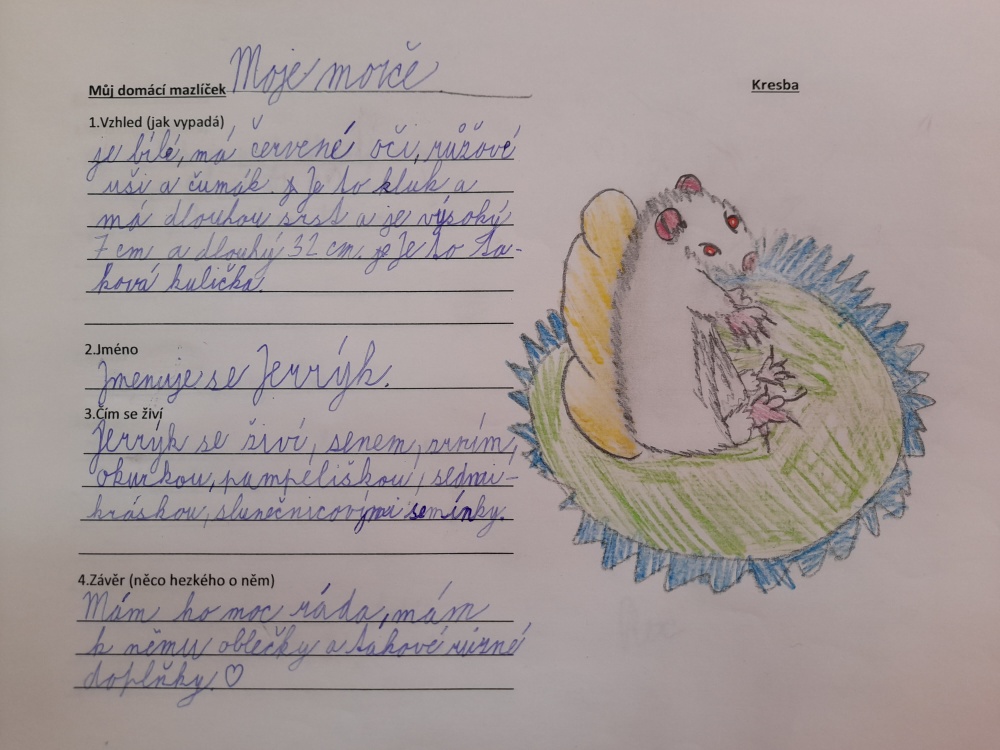 Můj domácí mazlíček Moje morče
Kresba
1.Vzhled (jak vypadá)
je bílé, má červené oči, růžové
uši a čumák. Je to kluk a
má dlouhou srst a je vysoký
7 cm a dlouhý 32 cm. Je to ta-
ková kulička.
2.Jméno
Jmenuje se Jerrýk.
3.Čím se živí
Jerrýk se živí, senem, zrním,
okurkou, pampeliškou, sedmi-
kráskou, slunečnicovými semínky.
4.Závěr (něco hezkého o něm)
Mám ho moc ráda, mám
k němu oblečky a takové různé
doplňky. ♡